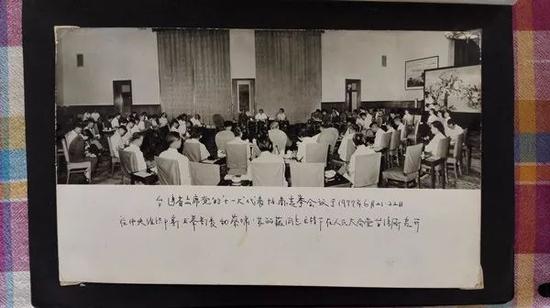 台湾省出席党的"十一大"代表协商选举会议于1977年6月21-22日
在中央组织部 同志主持下在人民大会堂台湾厅召开